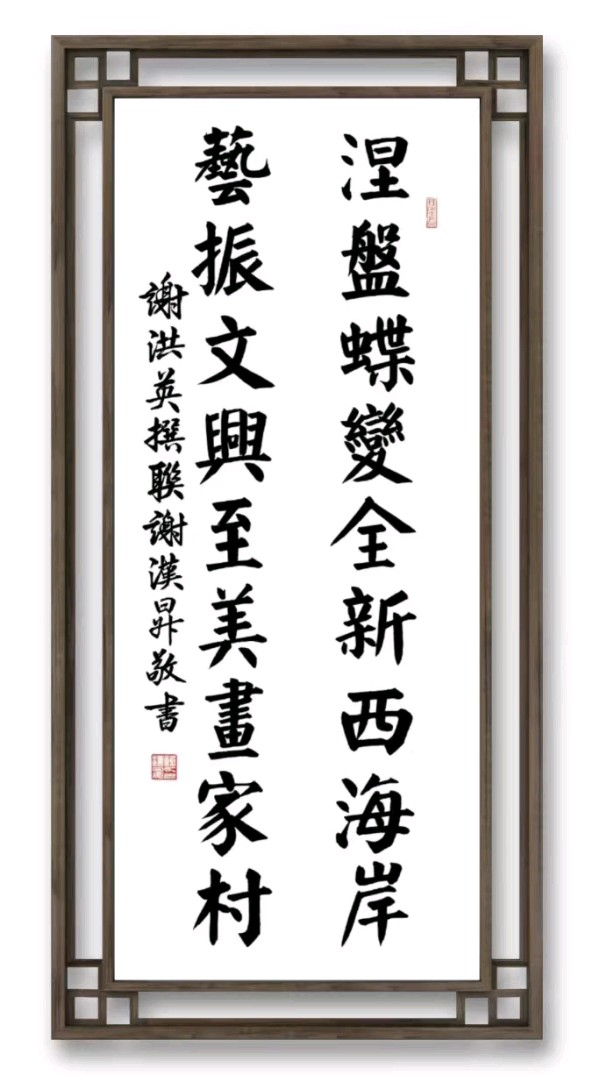 涅盤蝶變全新西海岸
藝振文興至美畫家村
謝洪英撰聯謝漢昇敬書